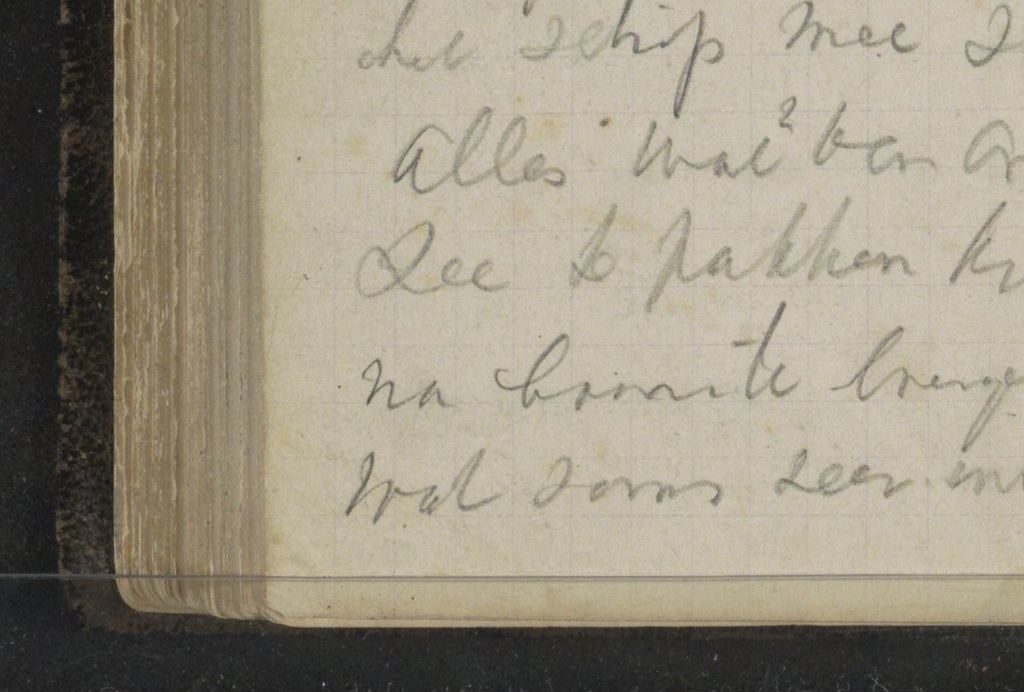 het schip mee
Alles wat ken
See te pakken
na bovente brenge
Wat soms seer